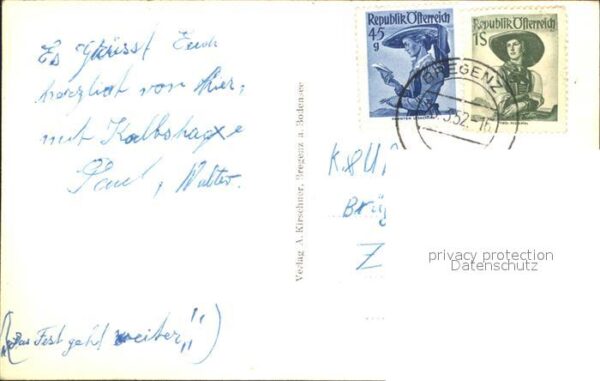 Es grüsst Euch
herzlich von hier,
mit Kalbshaxe
Paul, Walter.
("Das Fest geht weiter"!)
Verlag A. Kirschner, Bregenz a. Bodensee
Republik Österreich
45
g
Republik Österreich
1S
BREGENZ
.5.52.-16
K&U
Brü
Z
privacy protection
Datenschutz